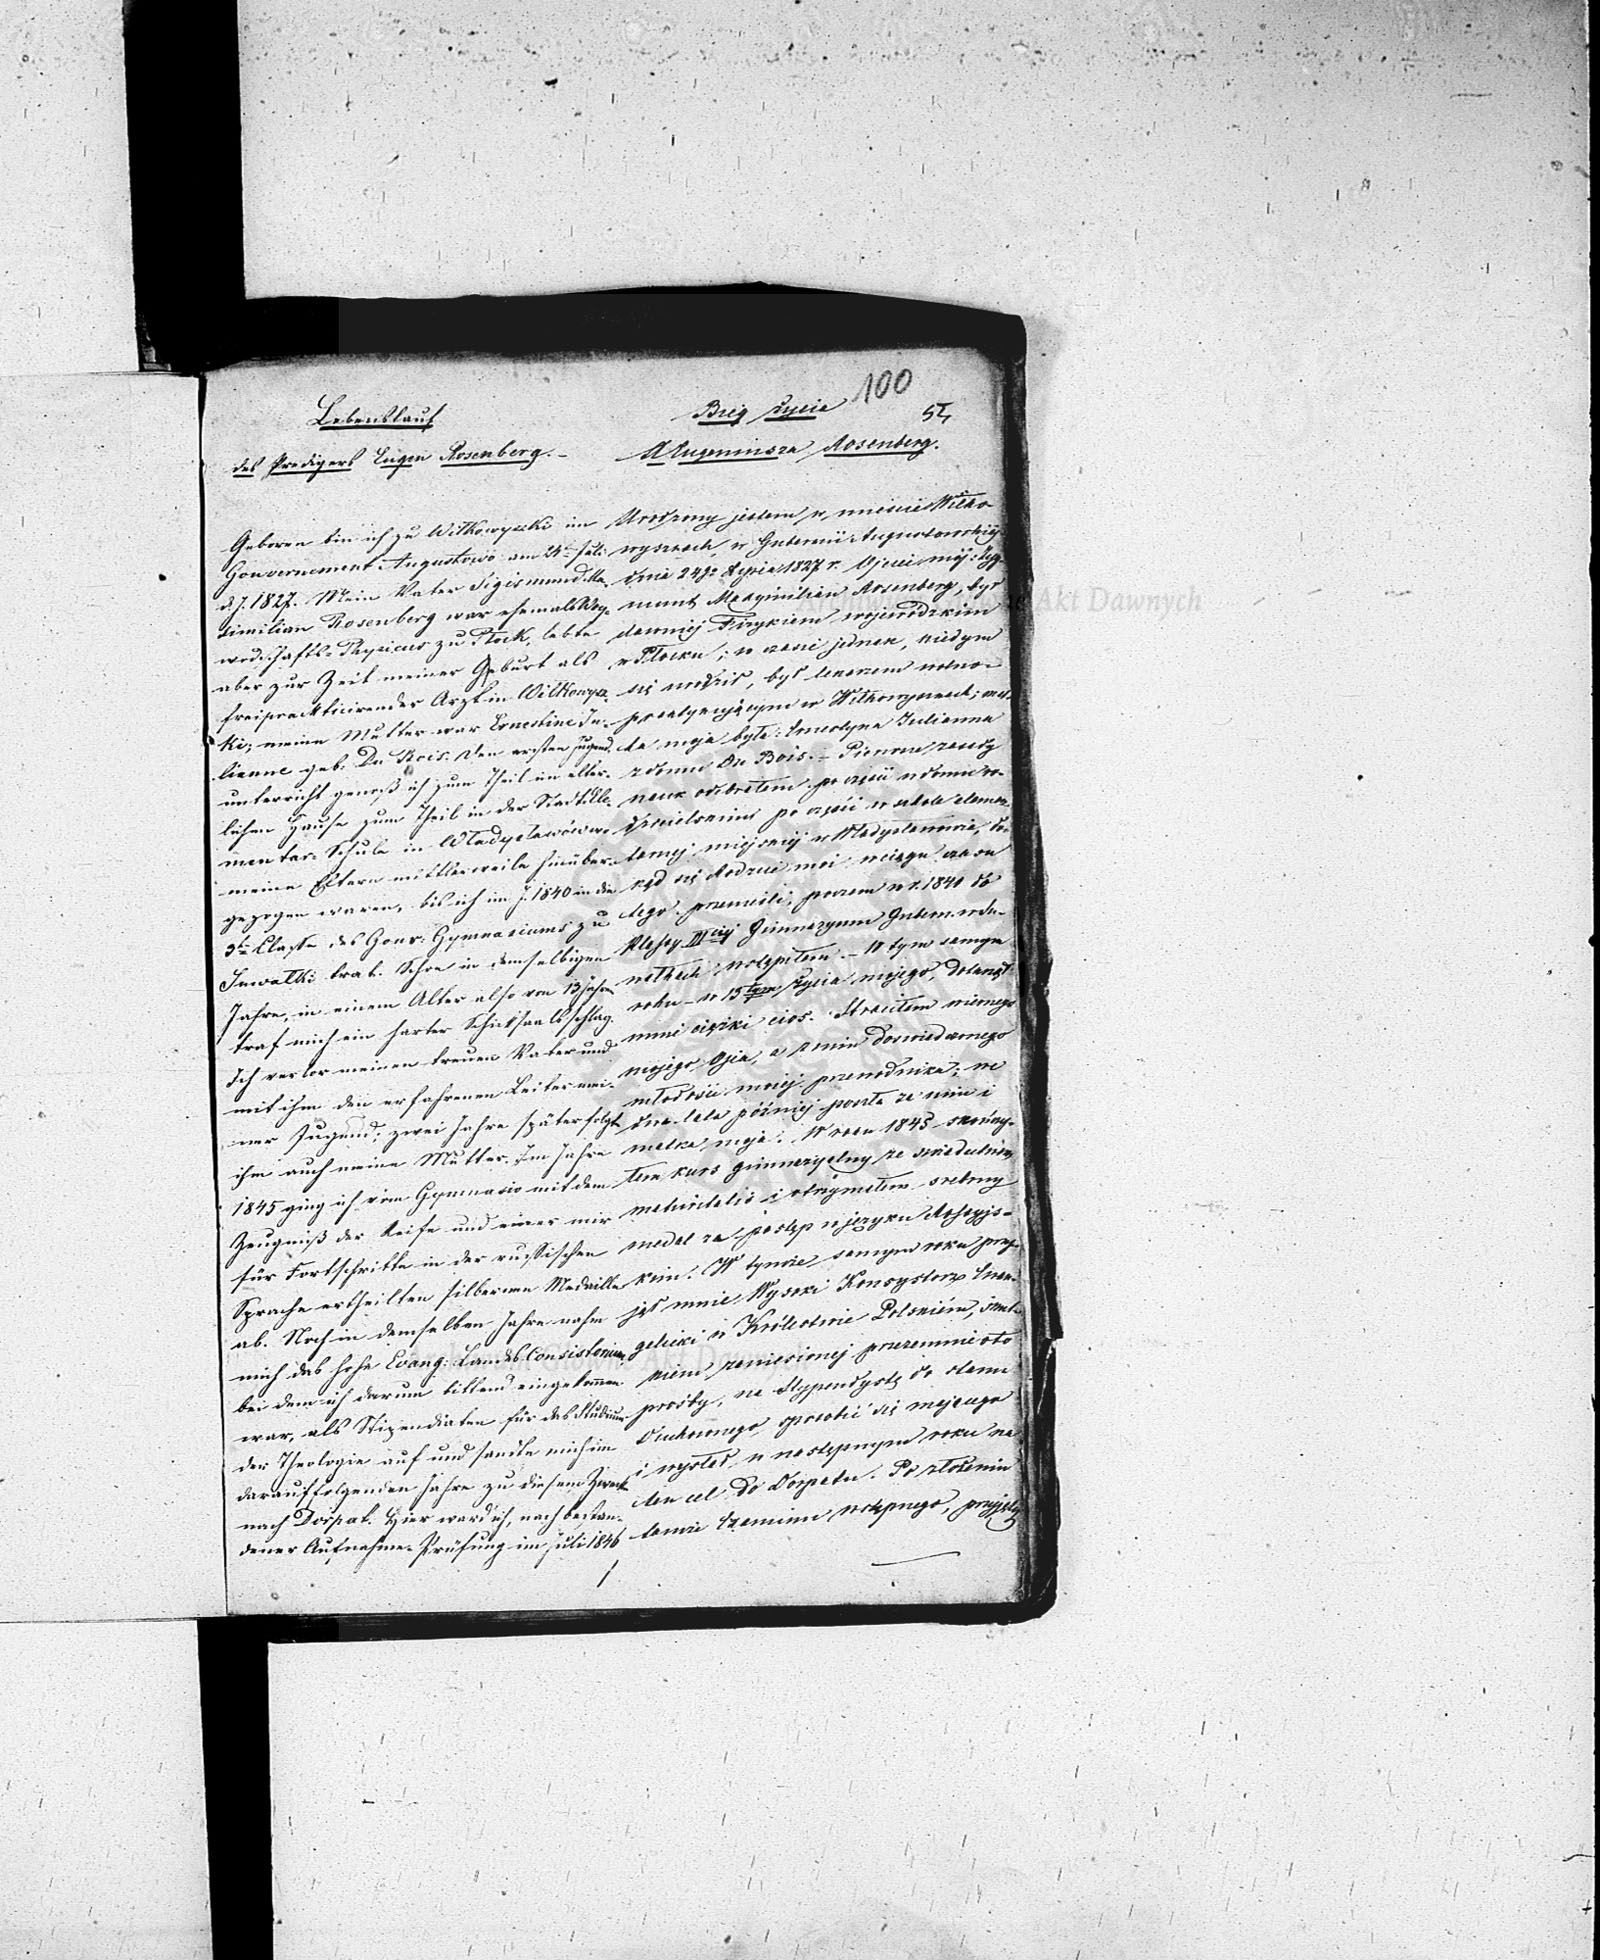 100
54
Lebenslauf
des Predigers Eugen Rosenberg.
Geboren bin ich zu Wilkowyszki im
Gouvernement Augustowo am 24. Juli
d. J. 1827. Mein Vater Sigismund Ma-
ximilian Rosenberg war ehemals Woje-
wodschafts-Physicus zu Płock, lebte
aber zur Zeit meiner Geburt als
freiprackticirender Arzt in Wilkowysz-
ki; meine Mutter war Ernestine Ju-
lianne geb. Du Bois. Den ersten Jugend-
unterricht genoß ich zum Theil im elter-
lichen Hause zum Theil in der Stadt Ele-
mentar-Schule in Władysławów, wo
meine Eltern mittlerweile hinüber-
gezogen waren, bis ich im J. 1840 in die
3te Classe des Gouv: Gymnasiums zu
Suwałki trat. Schon in demselbigen
Jahre, in einem Alter also von 13 Jahren
traf mich ein harter Schicksalsschlag.
Ich verlor meinen treuen Vater und
mit ihm den erfahrenen Leiter mei-
ner Jugend; zwei Jahre später folgte
ihm auch meine Mutter. Im Jahre
1845 ging ich vom Gymnasio mit dem
Zeugniß der Reife und einer mir
für Fortschritte in der russischen
Sprache ertheilten silbernen Medaille
ab. Noch in demselben Jahre nahm
mich das hohe Evang: Landes Consistorium,
bei dem ich darum bittend eingekommen
war, als Stipendiaten für das Studium
der Theologie auf und sandte mich im
darauffolgenden Jahre zu diesem Zweck
nach Dorpat. Hier ward ich, nach bestan-
dener Aufnahme-Prüfung im Juli 1846
Bieg życia
Eugeniusza Rosenberg.
Urodzony jestem w mieście Wiłko-
wyszkach, w Gubernii Augustowskiej
dnia 24go Lipca 1827 r. Ojciec mój: Zyg-
munt Maxymilian Rosenberg, był
dawniej Fizykiem wojewódzkim
w Płocku; w czasie jednak, kiedym
się urodził, był lekarzem wolno-
praktykującym w Wiłkowyszkach; mat-
ka moja była: Ernestyna Julianna
z domu Du Bois. – Pierwsze zasady
nauk odebrałem po części w domu ro-
dzicielskim po części w szkole elemen-
tarnej miejskiej w Władysławowie, do-
kąd się Rodzice moi w ciągu czasu
tego przenieśli, poczem w r. 1840 do
Klassy IIIciej Gimnazyum Gubern. w Su-
wałkach wstąpiłem. – W tym samym
roku – w 13tym życia mojego, dotknął
mnie ciężki cios. Straciłem wiernego
mojego Ojca, a z nim doswiadczonego
młodości mojej przewodnika; we
dwa lata później poszła za nim i
matka moja. W roku 1845 skończy-
łem kurs gimnazyalny ze świadectwem
maturitatis i otrzymałem srebrny
medal za postęp w języku Rossyjs-
kim. W tymże samym roku przy-
jął mnie Wysoki Konsystorz Ewan-
gelicki w Królestwie Polskiém,
zaniesionej przezemnie oto
prośby, na Stypendystę do stanu
Duchownego sposobić się mającego
i wysłał w następnym roku na
ten cel do Dorpatu. Po złożeniu
tamże Examinu wstępnego, przyjęty